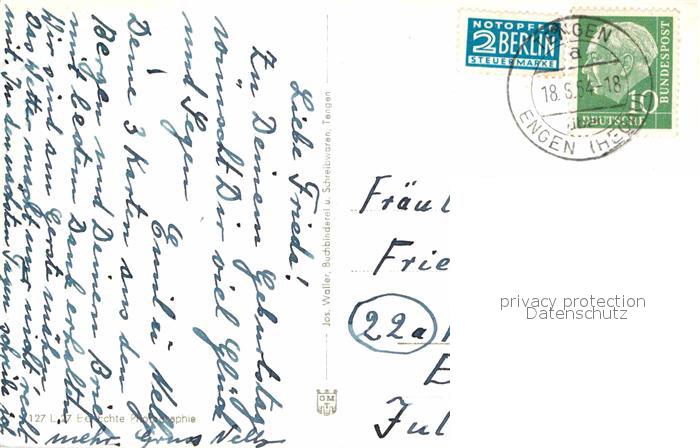 NOTOPFER
2 BERLIN
STEUERMARKE
ENGEN
a
18.8.54-18
ENGEN (HEG
10
DEUTSCHE
BUNDESPOST
Liebe Frieda!
Zu Deinem Geburtstag
wünscht Dir viel Glück
und Segen
Emil u. Nelly
Deine 3 Karten aus den
Bergen und Deinen Brief
mit bestem Dank erhalten.
Wir sind am Gerste mähen.
Das Wetter macht nur nicht recht
mit. In den nächsten Tagen schreibe ich
mehr. Gruss Nelly
Jos. Waller, Buchbinderei u. Schreibwaren, Tengen
127 L 27 Echte Photographie
GM
Fräul
Frie
22a
Jul
privacy protection
Datenschutz